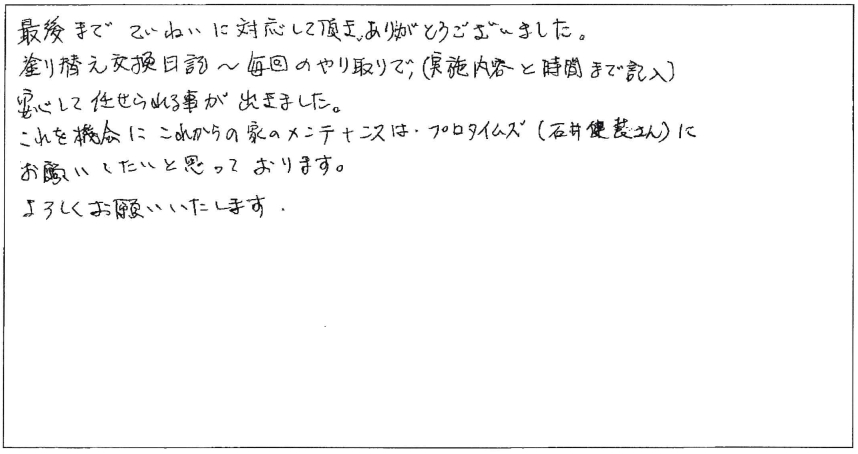 最後まで ていねいに対応して頂き、ありがとうございました。
塗り替え交換日記～毎回のやり取りで、(実施内容と時間まで記入)
安心して任せられる事が出きました。
これを機会に これからの家のメンテナンスは、プロタイムズ (石井健さん)に
お願いしたいと思っております。
よろしくお願いいたします.